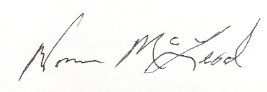 Norm McLeod